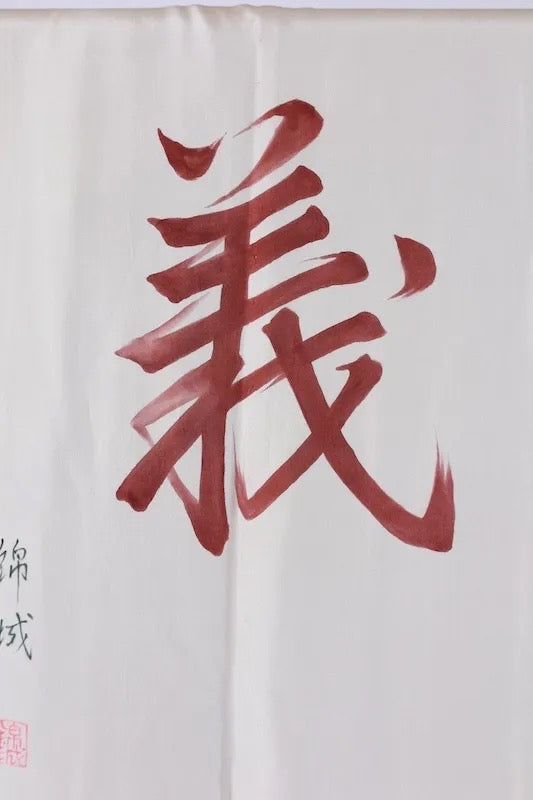 義
錦
城